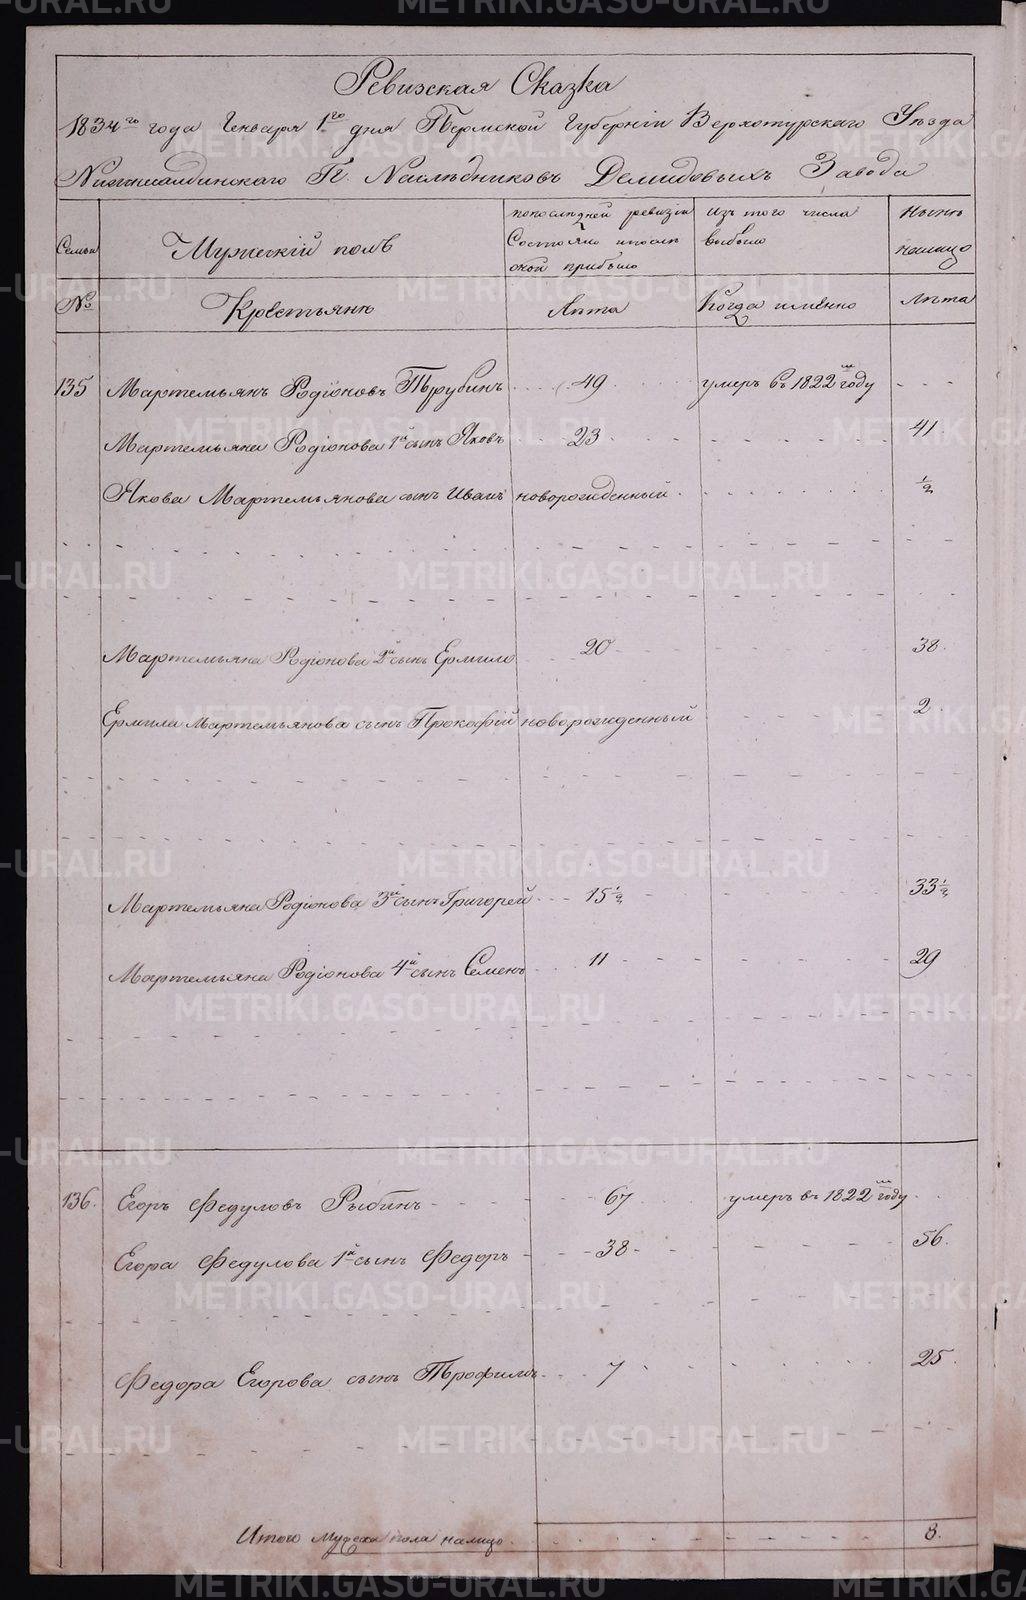 Ревизская Сказка
1834го года Генваря 1го дня Пермской Губерніи Верхотурскаго Уѣзда
Нижнесалдинскаго Гг. Наслѣдниковъ Демидовыхъ Завода
Семьи
Мужескій полъ
по последней ревизіи
Состояло и после
оной прибыло
Изъ того числа
выбыло
Нынѣ
налицо
№ Крестьянъ Лѣта Когда имѣнно Лѣта
135 Мартемьянъ Родіоновъ Трубинъ 49 умеръ въ 1822м году
Мартемьяна Родіонова 1й сынъ Яковъ 23 41
Якова Мартемьянова сынъ Иванъ новорожденный ½
Мартемьяна Родіонова 2й сынъ Ермило 20 38
Ермила Мартемьянова сынъ Прокофій новорожденный 2
Мартемьяна Родіонова 3й сынъ Григорей 15½ 33½
Мартемьяна Родіонова 4й сынъ Семенъ 11 29
136. Егоръ Федуловъ Рыбинъ 67 умеръ въ 1822м году
Егора Федулова 1й сынъ Федоръ 38 56.
Федора Егорова сынъ Трофимъ 7 25.
Итого Мужеска пола налицо 8.
METRIKI.GASO-URAL.RU